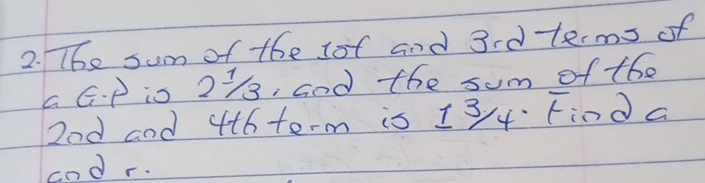 2. The sum of the 1st and 3rd terms of
a G.P is 2 1/3, and the sum of the
2nd and 4th term is 1 3/4. Find a
and r.